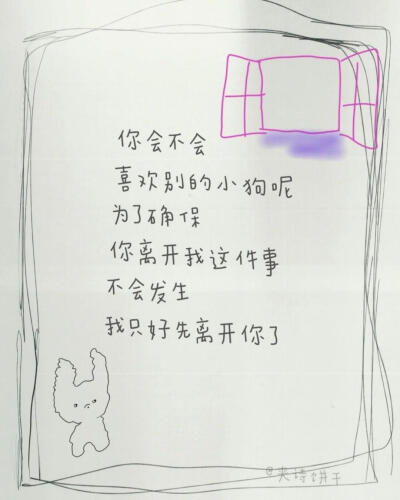 你会不会
喜欢别的小狗呢
为了确保
你离开我这件事
不会发生
我只好先离开你了
@夹诗饼干